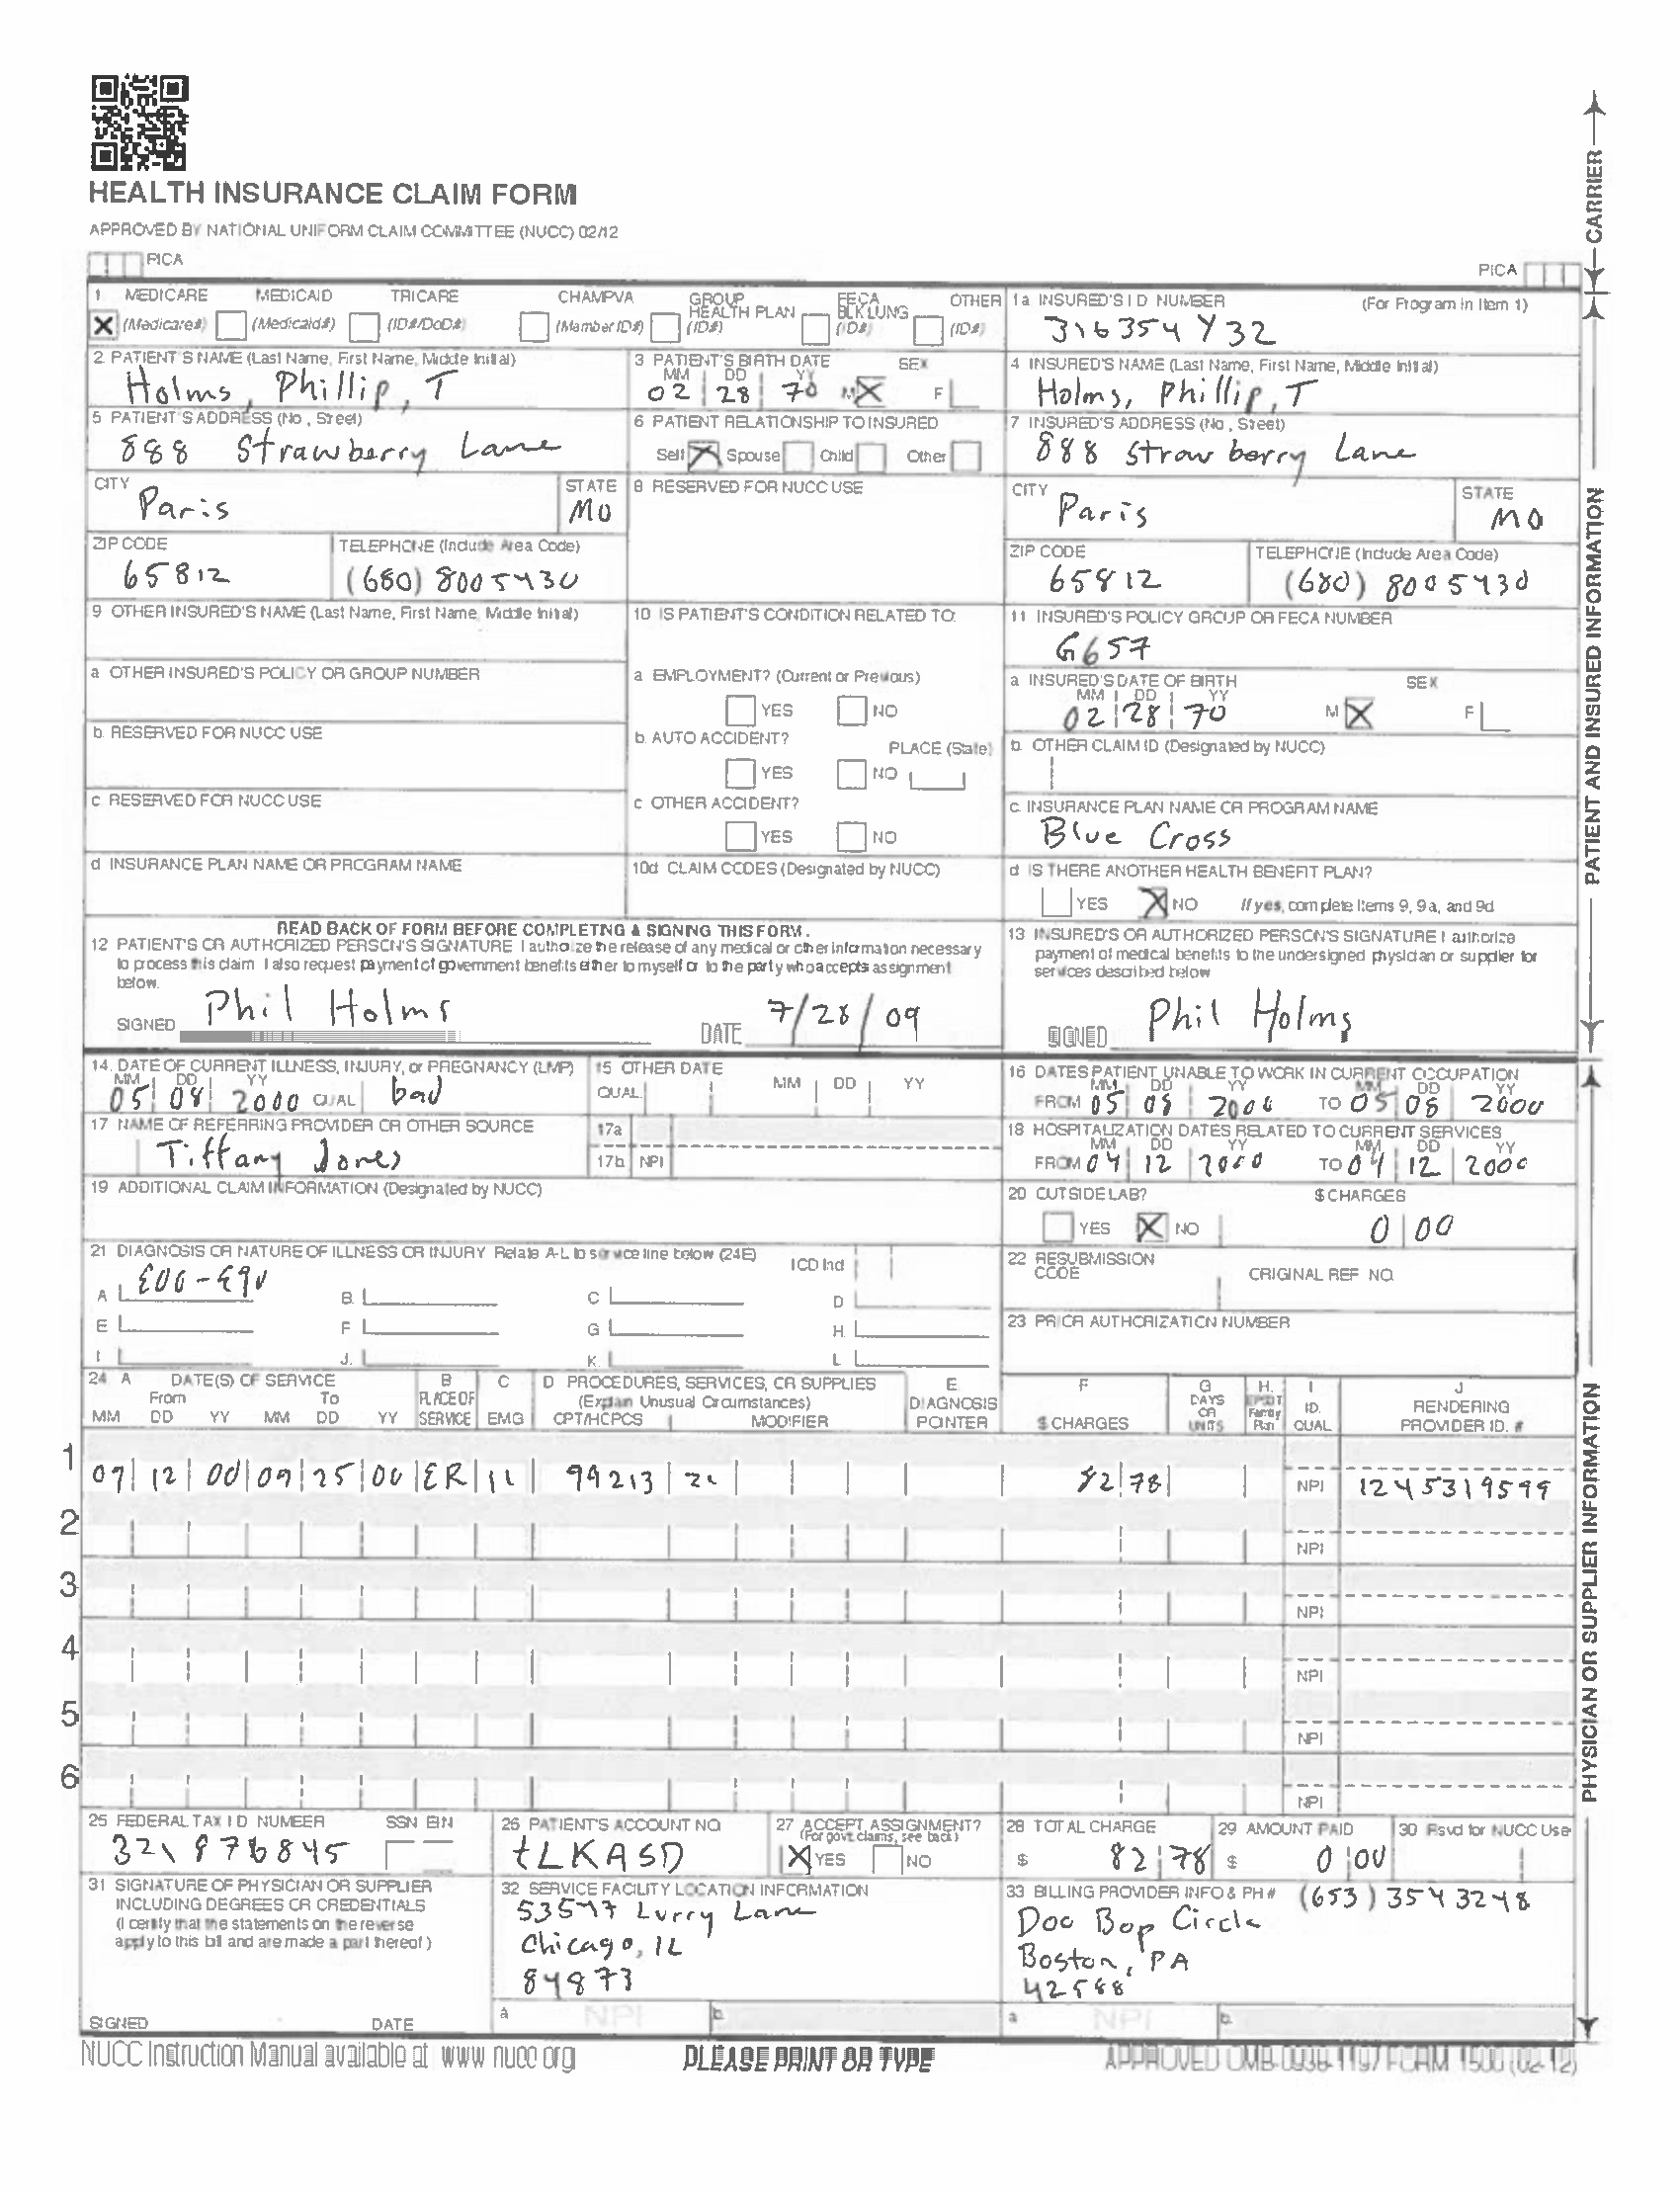 HEALTH INSURANCE CLAIM FORM
APPROVED BY NATIONAL UNIFORM CLAIM COMMITTEE (NUCC) 02/12
PICA
PICA
CARRIER
1 MEDICARE MEDICAID TRICARE CHAMPVA GROUP HEALTH PLAN FECA BLK LUNG OTHER
X (Medicare#) (Medicaid#) (ID#/DoD#) (Member ID#) (ID#) (ID#) (ID#)
1a INSURED'S I D NUMBER (For Program in Item 1)
316354Y32
2 PATIENT'S NAME (Last Name, First Name, Middle Initial)
Holms, Phillip, T
3 PATIENT'S BIRTH DATE SEX
MM DD YY
02 28 70 M X F
4 INSURED'S NAME (Last Name, First Name, Middle Initial)
Holms, Phillip, T
5 PATIENT'S ADDRESS (No, Street)
888 Strawberry Lane
6 PATIENT RELATIONSHIP TO INSURED
Self X Spouse Child Other
7 INSURED'S ADDRESS (No, Street)
888 Strawberry Lane
CITY STATE
Paris MO
8 RESERVED FOR NUCC USE
CITY STATE
Paris MO
ZIP CODE TELEPHONE (Include Area Code)
65812 (680) 8005430
ZIP CODE TELEPHONE (Include Area Code)
65812 (680) 8005430
9 OTHER INSURED'S NAME (Last Name, First Name, Middle Initial)
10 IS PATIENT'S CONDITION RELATED TO:
11 INSURED'S POLICY GROUP OR FECA NUMBER
G657
a OTHER INSURED'S POLICY OR GROUP NUMBER
a EMPLOYMENT? (Current or Previous)
YES NO
a INSURED'S DATE OF BIRTH SEX
MM DD YY
02 28 70 M X F
b. RESERVED FOR NUCC USE
b. AUTO ACCIDENT? PLACE (State)
YES NO
b. OTHER CLAIM ID (Designated by NUCC)
c RESERVED FOR NUCC USE
c OTHER ACCIDENT?
YES NO
c. INSURANCE PLAN NAME OR PROGRAM NAME
Blue Cross
d INSURANCE PLAN NAME OR PROGRAM NAME
10d CLAIM CODES (Designated by NUCC)
d IS THERE ANOTHER HEALTH BENEFIT PLAN?
YES X NO If yes, complete items 9, 9a, and 9d
PATIENT AND INSURED INFORMATION
READ BACK OF FORM BEFORE COMPLETING & SIGNING THIS FORM.
12 PATIENT'S OR AUTHORIZED PERSON'S SIGNATURE I authorize the release of any medical or other information necessary
to process this claim I also request payment of government benefits either to myself or to the party who accepts assignment
below.
SIGNED Phil Holms DATE 7/28/09
13 INSURED'S OR AUTHORIZED PERSON'S SIGNATURE I authorize
payment of medical benefits to the undersigned physician or supplier for
services described below
SIGNED Phil Holms
14. DATE OF CURRENT ILLNESS, INJURY, or PREGNANCY (LMP)
MM DD YY
05 08 2000 QUAL bad
15 OTHER DATE
QUAL MM DD YY
16 DATES PATIENT UNABLE TO WORK IN CURRENT OCCUPATION
MM DD YY MM DD YY
FROM 05 08 2000 TO 05 08 2000
17 NAME OF REFERRING PROVIDER OR OTHER SOURCE
Tiffany Jones
17a
17b NPI
18 HOSPITALIZATION DATES RELATED TO CURRENT SERVICES
MM DD YY MM DD YY
FROM 04 12 2000 TO 04 12 2000
19 ADDITIONAL CLAIM INFORMATION (Designated by NUCC)
20 OUTSIDE LAB? $ CHARGES
YES X NO 0 00
21 DIAGNOSIS OR NATURE OF ILLNESS OR INJURY Relate A-L to service line below (24E) ICD Ind
A E00-E90 B. C D
E F G H.
I J. K. L
22 RESUBMISSION CODE ORIGINAL REF NO.
23 PRIOR AUTHORIZATION NUMBER
24 A DATE(S) OF SERVICE B C D PROCEDURES, SERVICES, OR SUPPLIES E F G H. I J
From To PLACE OF (Explain Unusual Circumstances) DIAGNOSIS DAYS OR UNITS EPSDT Family Plan ID. RENDERING
MM DD YY MM DD YY SERVICE EMG CPT/HCPCS MODIFIER POINTER $ CHARGES QUAL PROVIDER ID. #
1 12 00 25 00 ER 99213 82 78 NPI 1245319599
2 NPI
3 NPI
4 NPI
5 NPI
6 NPI
25 FEDERAL TAX I D NUMBER SSN EIN
321876845
26 PATIENT'S ACCOUNT NO
tLKASD
27 ACCEPT ASSIGNMENT?
(For govt. claims, see back)
X YES NO
28 TOTAL CHARGE
$ 82 78
29 AMOUNT PAID
$ 0 00
30 Rsvd for NUCC Use
31 SIGNATURE OF PHYSICIAN OR SUPPLIER
INCLUDING DEGREES OR CREDENTIALS
(I certify that the statements on the reverse
apply to this bill and are made a part thereof)
SIGNED DATE
32 SERVICE FACILITY LOCATION INFORMATION
Lurry Lane
Chicago, IL
84873
a NPI b.
33 BILLING PROVIDER INFO & PH # (653) 3543248
Doo Bop Circle
Boston, PA
a NPI b.
PHYSICIAN OR SUPPLIER INFORMATION
NUCC Instruction Manual available at www nucc org
PLEASE PRINT OR TYPE
APPROVED OMB-0938-1197 FORM 1500 (02-12)